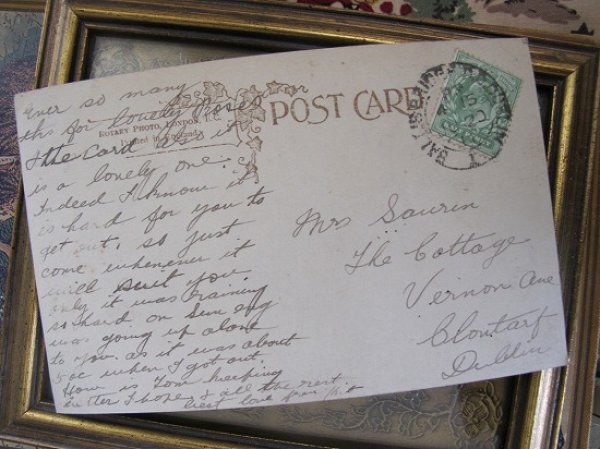 Ever so many
ths for lovely Roses
& the card as it
is a lonely one.
Indeed I know it
is hard for you to
get out, so just
come whenever it
will suit you.
only it was raining
so hard on Sun evg
was going up alone
to you. as it was about
5 oc when I got out.
How is Tom keeping
better I hope & all the rest
best love from Kit
ROTARY PHOTO, LONDON
Printed in England
POST CARD
Mrs Saurin
The Cottage
Vernon Ave
Clontarf
Dublin